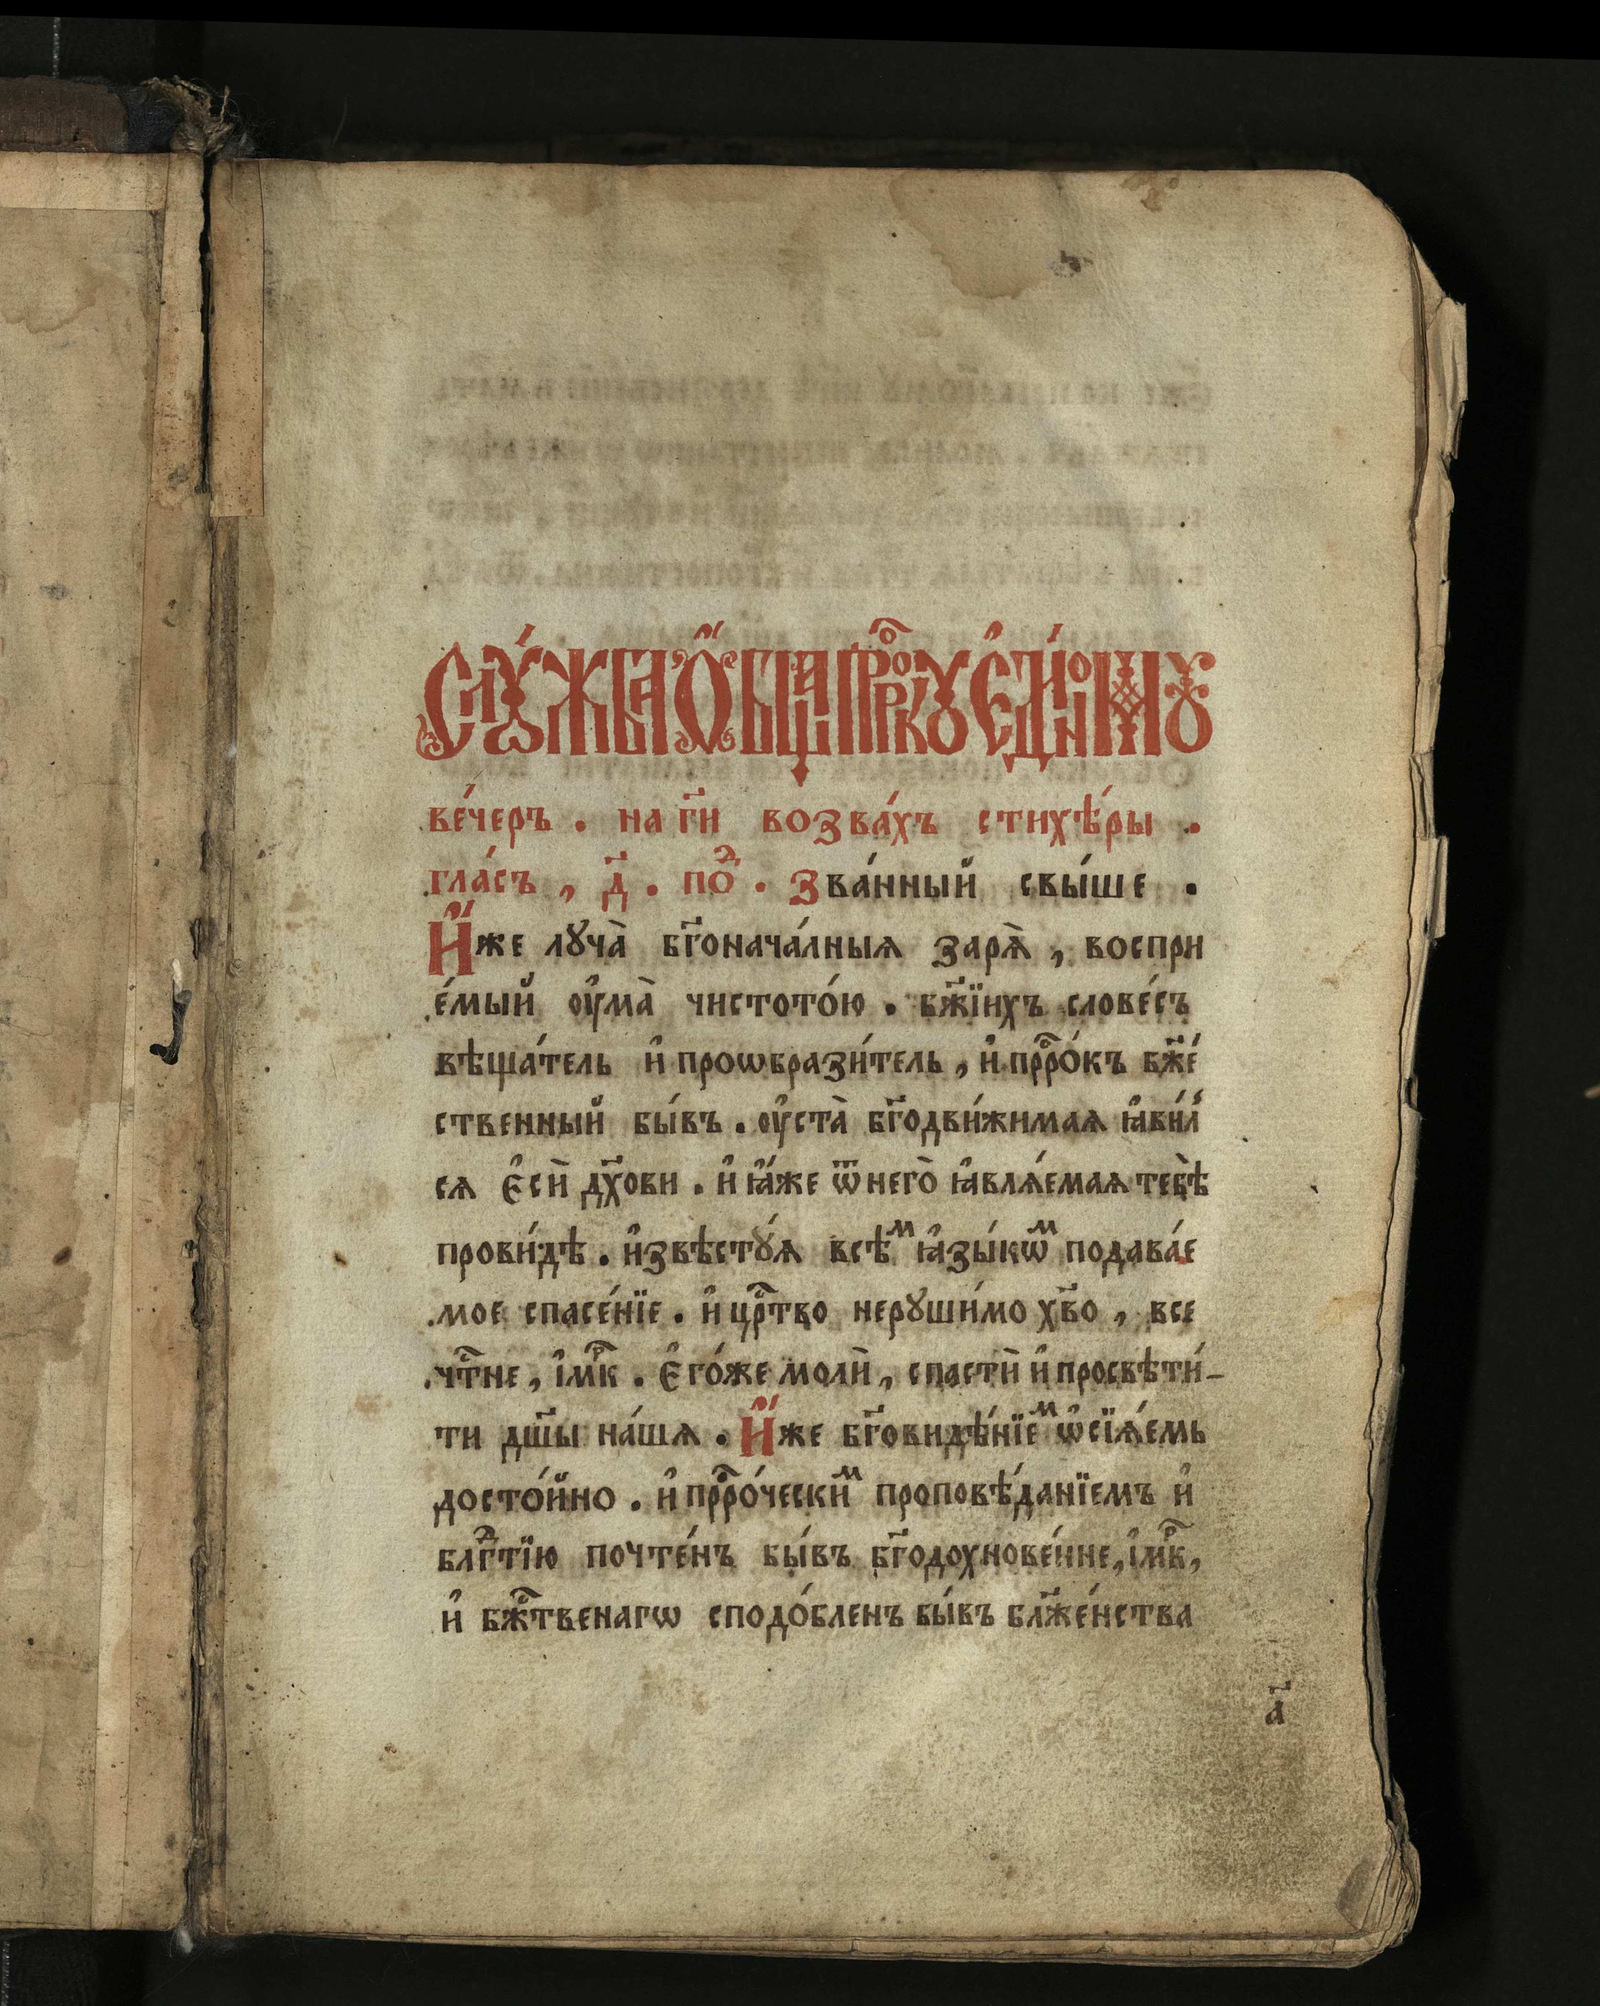 Слꙋ́жба ѻ҆́бщаѧ прⷪ҇рокꙋ є҆ди́номꙋ
ве́черъ . на гд҇и возва́хъ стихѣ́ры .
гла́съ , д҃ . поⷣ . Зва́нный свы́ше .
И҆́же лꙋча̀ бг҃онача́лныѧ зарѧ̀ , воспрі
е́мый оу҆ма̀ чистото́ю . бж҃їихъ слове́съ
вѣща́тель и҆ проѡбрази́тель , и҆ прⷪ҇ро́къ бж҃е́
ственный бы́въ . оу҆ста̀ бг҃одви́жимаѧ ꙗ҆ви́л
сѧ є҆сѝ дх҃ови . и҆ ꙗ҆́же ѿ негѡ̀ ꙗ҆влѧ́емаѧ тебѣ̀
прови́дѣ . и҆звѣстꙋ́ѧ всѣⷨ ꙗ҆зы́кѡⷨ подава́е
мое спасе́нїе . и҆ црⷭ҇тво нерꙋши́мо хв҃о , все
чтⷭ҇не , і҆м҃къ . Є҆го́же молѝ , спастѝ и҆ просвѣти́-
ти дш҃ы на́шѧ . И҆́же бг҃овидѣ́нїеⷨ ѡ҆сїѧ́емь
досто́йно . и҆ прⷪ҇ро́ческиⷨ проповѣ́данїемъ и҆
блгⷣтїю почте́нъ бы́въ бг҃одохнове́нне, і҆м҃къ,
и҆ бжⷭ҇твенагѡ сподо́бленъ бы́въ блж҃е́нства
а҃